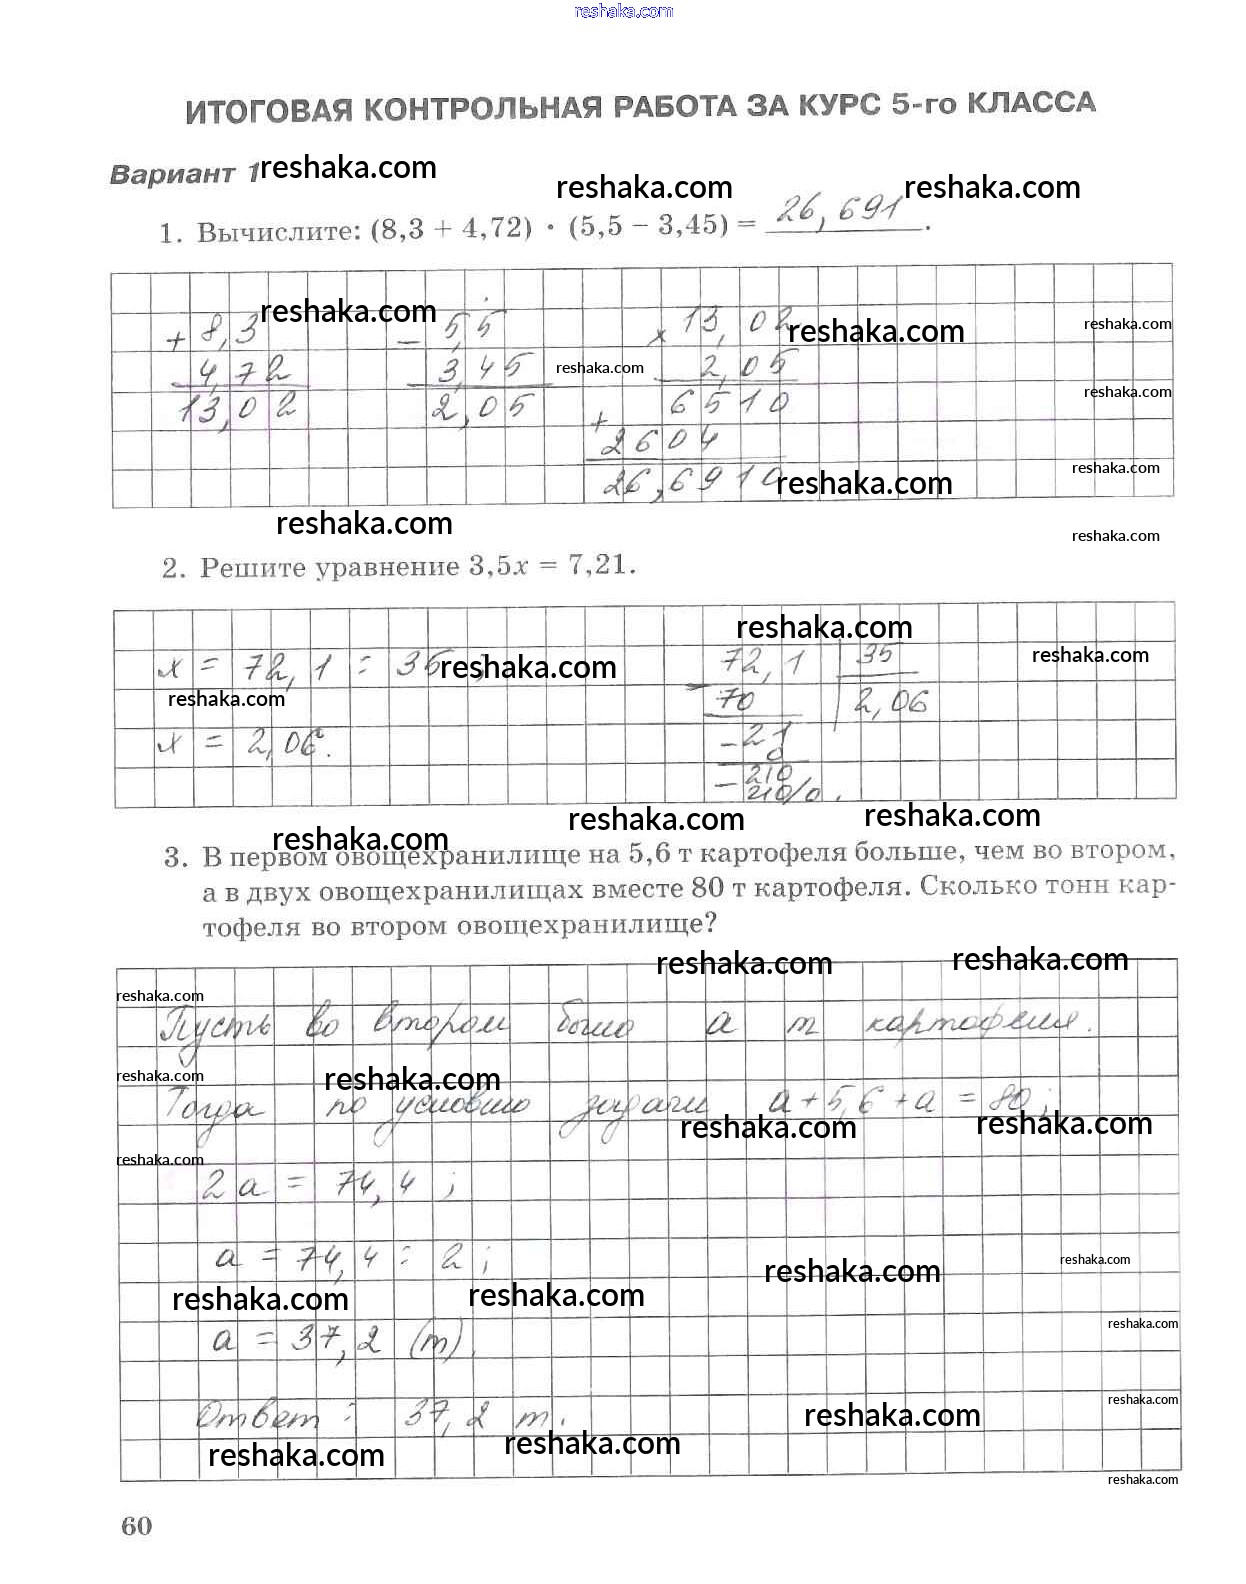 reshaka.com
ИТОГОВАЯ КОНТРОЛЬНАЯ РАБОТА ЗА КУРС 5-го КЛАССА
Вариант 1 reshaka.com
reshaka.com reshaka.com
1. Вычислите: (8,3 + 4,72) · (5,5 − 3,45) = 26,691.
reshaka.com
+ 8,3 − 5,5 × 13,02 reshaka.com reshaka.com
4,72 3,45 reshaka.com 2,05
13,02 2,05 6510 reshaka.com
+ 2604
26,6910 reshaka.com reshaka.com
reshaka.com reshaka.com
2. Решите уравнение 3,5x = 7,21.
reshaka.com
x = 72,1 : 35 reshaka.com; − 72,1 35 reshaka.com
reshaka.com 70 2,06
x = 2,06. − 21
0
− 210
210/0.
reshaka.com reshaka.com reshaka.com
3. В первом овощехранилище на 5,6 т картофеля больше, чем во втором,
а в двух овощехранилищах вместе 80 т картофеля. Сколько тонн кар-
тофеля во втором овощехранилище?
reshaka.com reshaka.com
reshaka.com
Пусть во втором было a т картофеля.
reshaka.com reshaka.com
Тогда по условию задачи a + 5,6 + a = 80;
reshaka.com reshaka.com
reshaka.com
2a = 74,4;
a = 74,4 : 2; reshaka.com reshaka.com
reshaka.com reshaka.com
a = 37,2 (т). reshaka.com
reshaka.com
Ответ: 37,2 т. reshaka.com
reshaka.com reshaka.com
reshaka.com
60